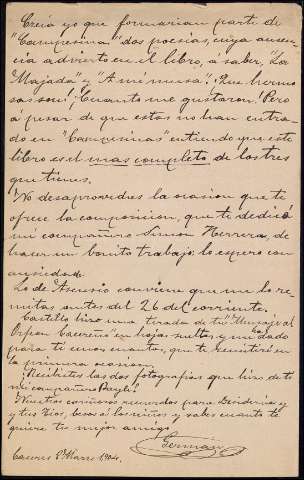 Creia yo que formarian parte de
"Campesinas" dos poesias, cuya ausen-
cia advierto en el libro, á saber, "La
Majada" y "A mi musa". ¡Qué hermo-
sas son! ¡Cuánto me gustaron! Pero
á pesar de que estas no han entra-
do en "Campesinas" entiendo que este
libro es el mas completo de los tres
que tienes.
No desaproveches la ocasion que te
ofrece la composicion, que te dedicó
mi compañero Simon Herrera, de
hacer un bonito trabajo: lo espero con
ansiedad.
Lo de Asensio conviene que me lo re-
mitas antes del 26 del corriente.
Castillo hizo una tirada de tu "Mensaje al
Orfeon Cacereño" en hojas sueltas y me ha dado
para ti unos cuantos, que te remitiré en
la primera ocasion.
¿Recibistes las dos fotografias que hizo de ti
mi compañero
Nuestros cariñosos recuerdos para Desideria y
y tus tios, besos á los niños y sabes cuanto te
quiere tu mejor amigo
German
Caceres 8 Marzo 1904.